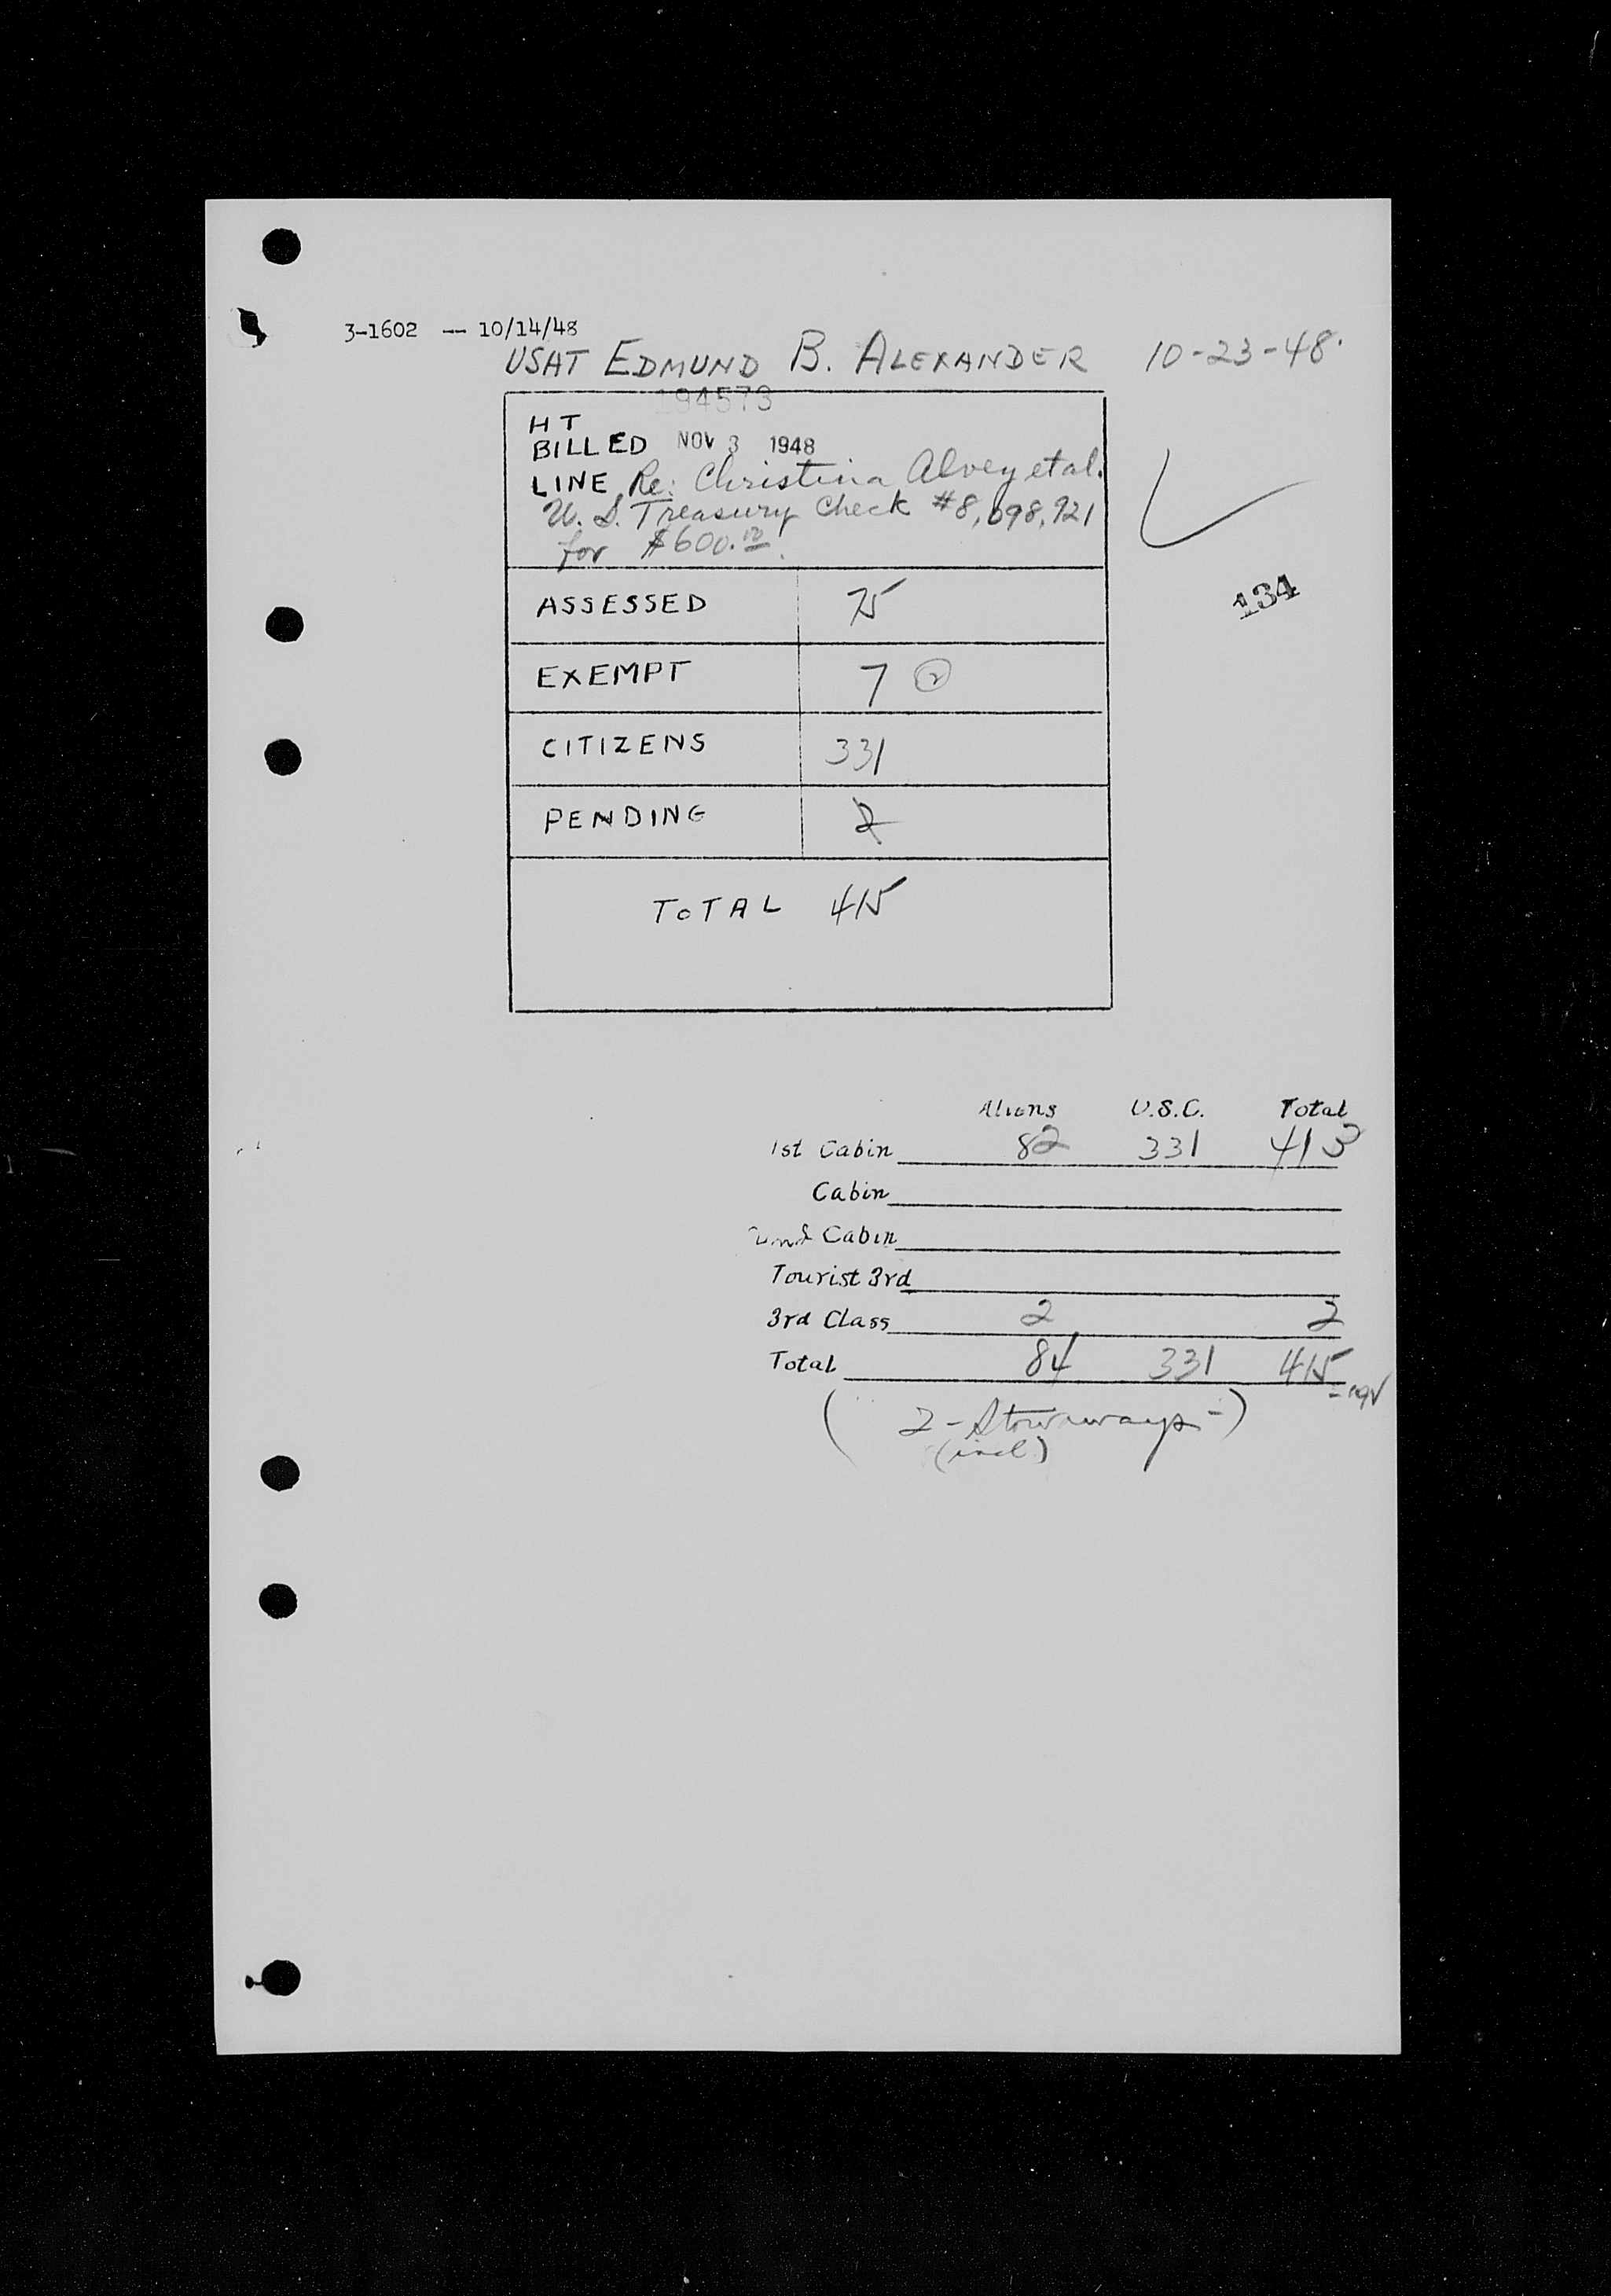 3-1602 -- 10/14/48
USAT EDMUND B. ALEXANDER 10-23-48.
194573
HT
BILLED NOV 3 1948
LINE Re: Christina Alvey et al.
U.S. Treasury Check #8,698,921
for $600.00
134
ASSESSED 75
EXEMPT 7 2
CITIZENS 331
PENDING 2
TOTAL 415
Aliens U.S.C. Total
1st Cabin 82 331 413
Cabin
2nd Cabin
Tourist 3rd
3rd Class 2 2
Total 84 331 415
(2-Stowaways-)
(incl)